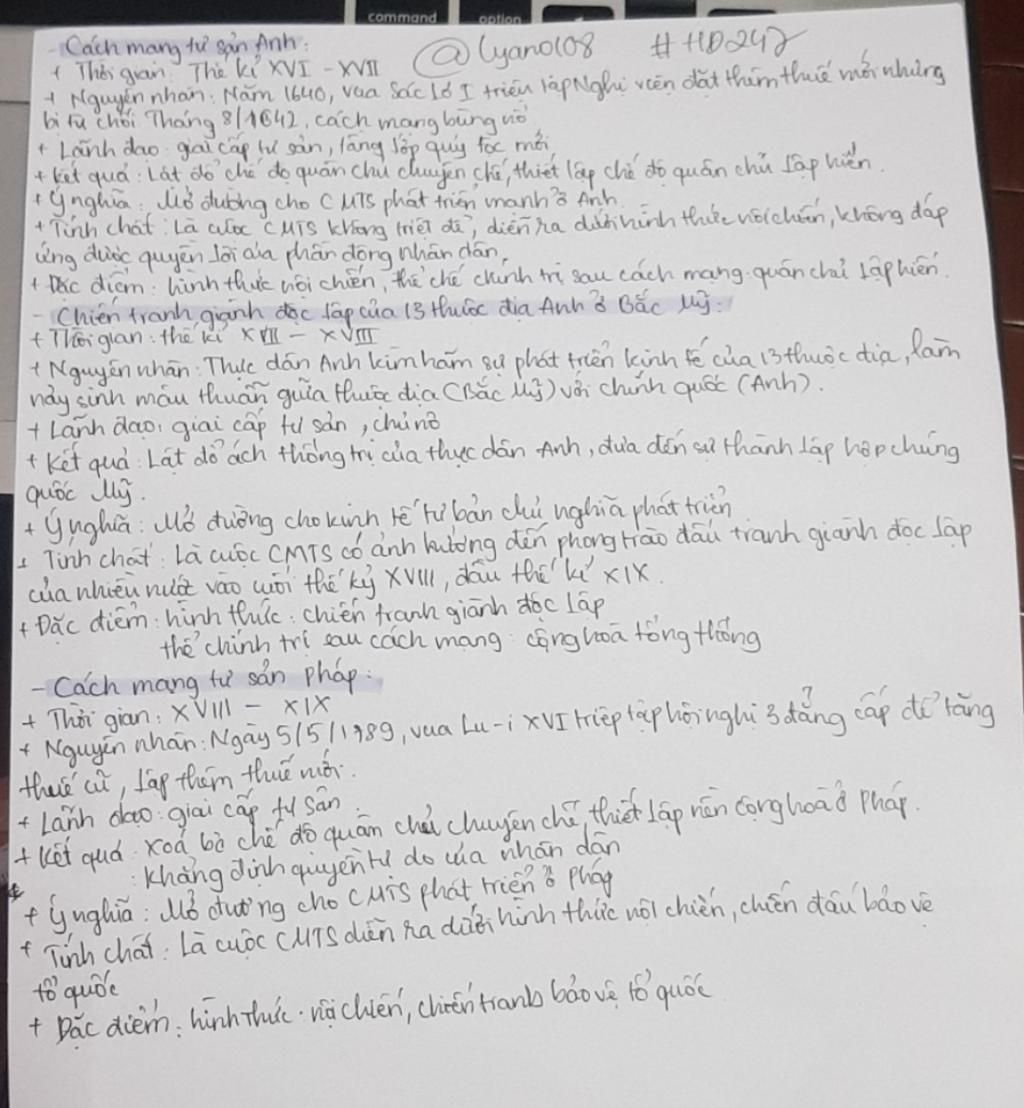 command option
- Cách mạng tư sản Anh: @lyano108 #HD247
+ Thời gian: Thế kỉ XVI - XVII
+ Nguyên nhân: Năm 1640, vua Sác lơ I triệu tập Nghị viện đặt thêm thuế mới nhưng
bị từ chối Tháng 8/1642, cách mạng bùng nổ
+ Lãnh đạo: giai cấp tư sản, tầng lớp quý tộc mới
+ kết quả: Lật đổ chế độ quân chủ chuyên chế, thiết lập chế độ quân chủ lập hiến.
+ Ý nghĩa: Mở đường cho CMTS phát triển mạnh ở Anh
+ Tính chất: Là cuộc CMTS không triệt để, diễn ra dưới hình thức nội chiến, không đáp
ứng được quyền lợi của phần đông nhân dân,
+ Đặc điểm: hình thức nội chiến, thể chế chính trị sau cách mạng: quân chủ lập hiến.
- Chiến tranh giành độc lập của 13 thuộc địa Anh ở Bắc Mỹ:
+ Thời gian: thế kỉ XVII - XVIII
+ Nguyên nhân: Thực dân Anh kìm hãm sự phát triển kinh tế của 13 thuộc địa, làm
nảy sinh mâu thuẫn giữa thuộc địa (Bắc Mỹ) với chính quốc (Anh).
+ Lãnh đạo: giai cấp tư sản, chủ nô
+ Kết quả: Lật đổ ách thống trị của thực dân Anh, đưa đến sự thành lập hợp chúng
quốc Mỹ.
+ Ý nghĩa: Mở đường cho kinh tế tư bản chủ nghĩa phát triển
+ Tính chất: Là cuộc CMTS có ảnh hưởng đến phong trào đấu tranh giành độc lập
của nhiều nước vào cuối thế kỷ XVIII, đầu thế kỉ XIX.
+ Đặc điểm: hình thức: chiến tranh giành độc lập
thể chính trị sau cách mạng: cộng hoà tổng thống
- Cách mạng tư sản pháp:
+ Thời gian: XVIII - XIX
+ Nguyên nhân: Ngày 5/5/1989, vua Lu-i XVI triệp tập hội nghị 3 đẳng cấp để tăng
thuế cũ, lập thêm thuế mới.
+ Lãnh đạo: giai cấp tư sản.
+ Kết quả: Xoá bỏ chế độ quân chủ chuyên chế, thiết lập nền cộng hoà ở Pháp.
: Khẳng định quyền tự do của nhân dân
+ Ý nghĩa: Mở đường cho CMTS phát triển ở Pháp
+ Tính chất: Là cuộc CMTS diễn ra dưới hình thức nội chiến, chiến đấu bảo vệ
tổ quốc
+ Đặc điểm: hình thức: nội chiến, chiến tranh bảo vệ tổ quốc